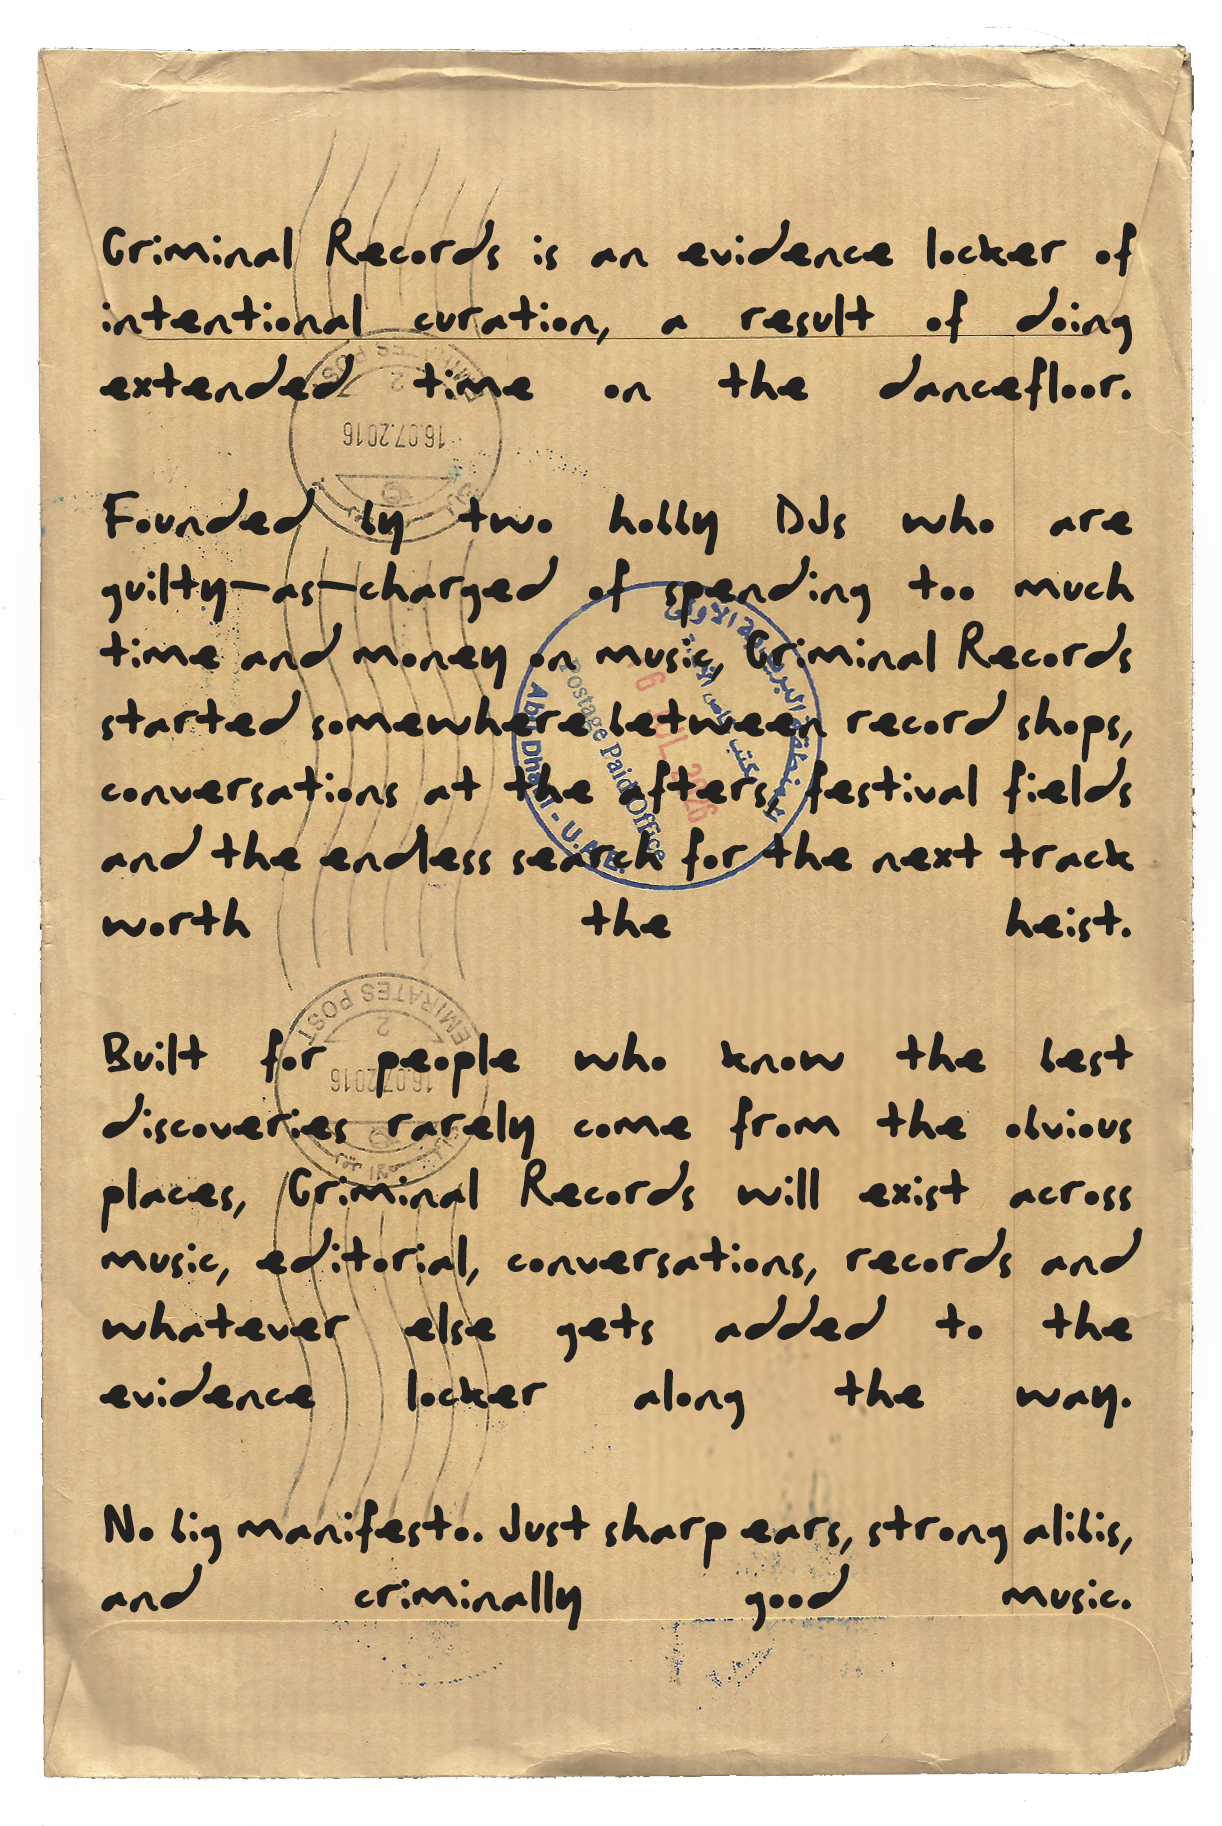 Criminal Records is an evidence locker of
intentional curation, a result of doing
extended time on the dancefloor.
Founded by two hobby DJs who are
guilty-as-charged of spending too much
time and money on music, Criminal Records
started somewhere between record shops,
conversations at the afters, festival fields
and the endless search for the next track
worth the heist.
Built for people who know the best
discoveries rarely come from the obvious
places, Criminal Records will exist across
music, editorial, conversations, records and
whatever else gets added to the
evidence locker along the way.
No big manifesto. Just sharp ears, strong alibis,
and criminally good music.
EMIRATES POST
2
16.07.2016
Postage Paid Office
Abu Dhabi - U.A.E.
EMIRATES POST
2
16.07.2016